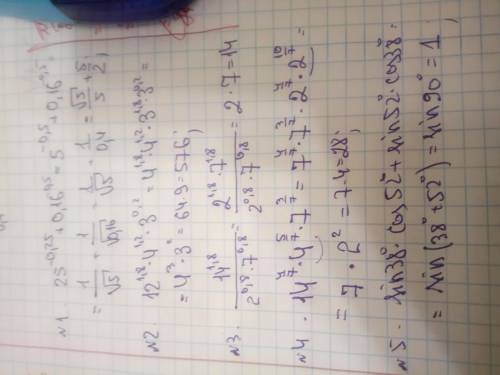 N1. 25^-0,25 + 0,16^-0,5 = 5^-0,5 + 0,16^-0,5 =
= 1/√5 + 1/√0,16 = 1/√5 + 1/0,4 = √5/5 + 5/2;
N2 12^1,8 · 4^1,2 · 3^0,2 = 4^1,8 · 4^1,2 · 3^1,8 · 3^0,2 =
= 4^3 · 3^2 = 64·9 = 576;
N3. 14^1,8 / 2^0,8 · 7^0,8 = 2^1,8 · 7^1,8 / 2^0,8 · 7^0,8 = 2·7 = 14
N4. 14^4/7 · 4^5/7 · 7^3/7 = 7^4/7 · 7^3/7 · 2^4/7 · 2^10/7 =
= 7 · 2^2 = 7·4 = 28;
N5. sin38° · cos52° + sin52° · cos38° =
= sin(38° + 52°) = sin90° = 1;